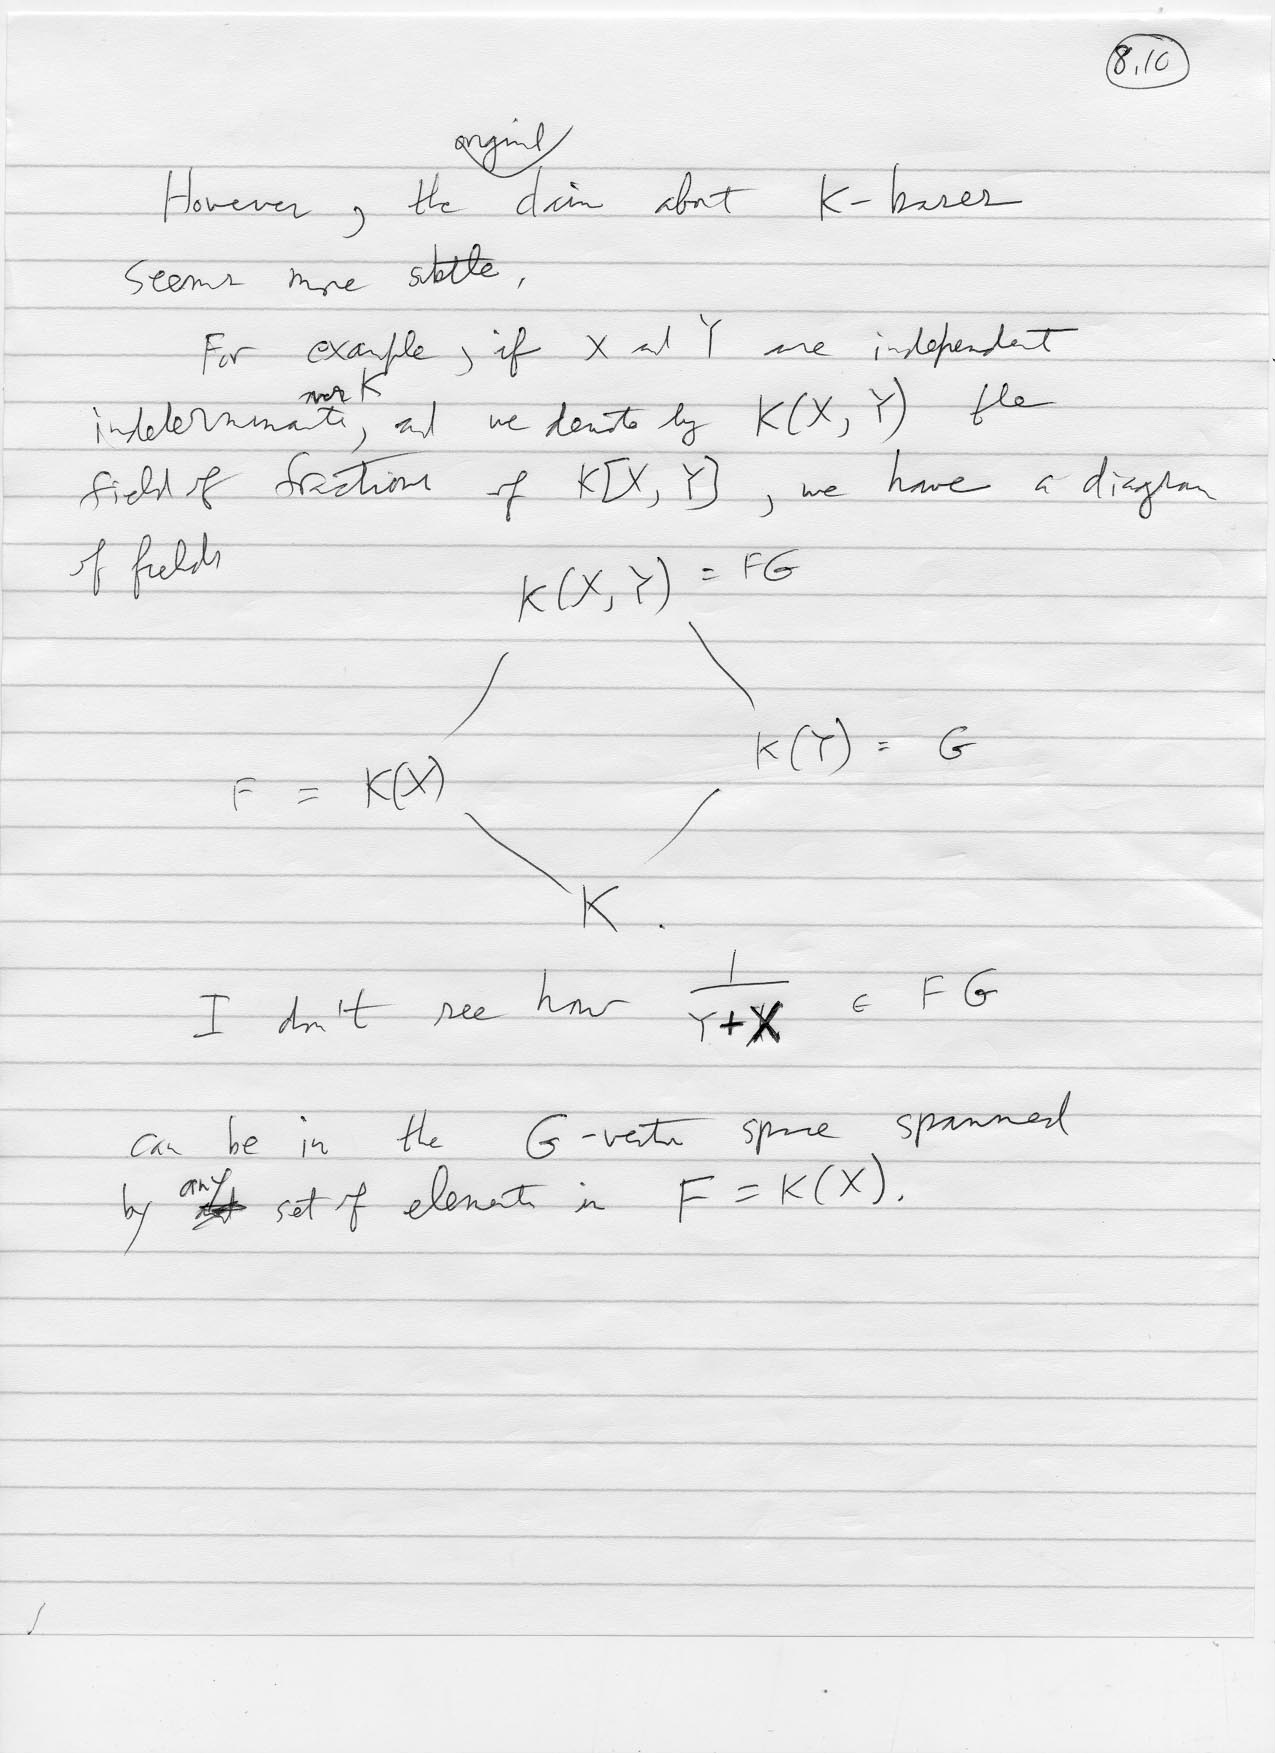 8.10
original
However, the claim about K-bases
seems more subtle,
For example, if X and Y are independent
over K
indeterminants, and we denote by K(X, Y) the
field of fractions of K[X, Y], we have a diagram
of fields
K(X, Y) = FG
K(Y) = G
F = K(X)
K.
I don't see how 1/(Y+X) ∈ FG
can be in the G-vector space spanned
any
by set of elements in F = K(X).